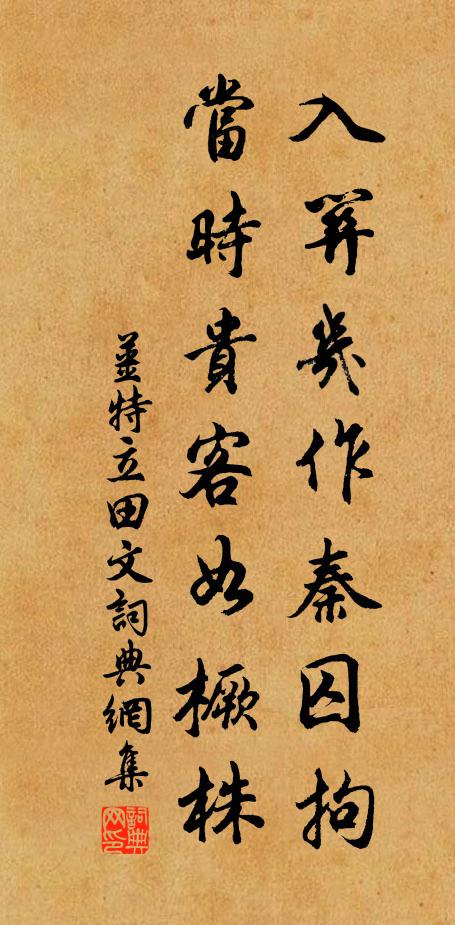 入羿幾作秦囚拘
當時貴客如橛株
姜特立田文詞典網集
詞典網印